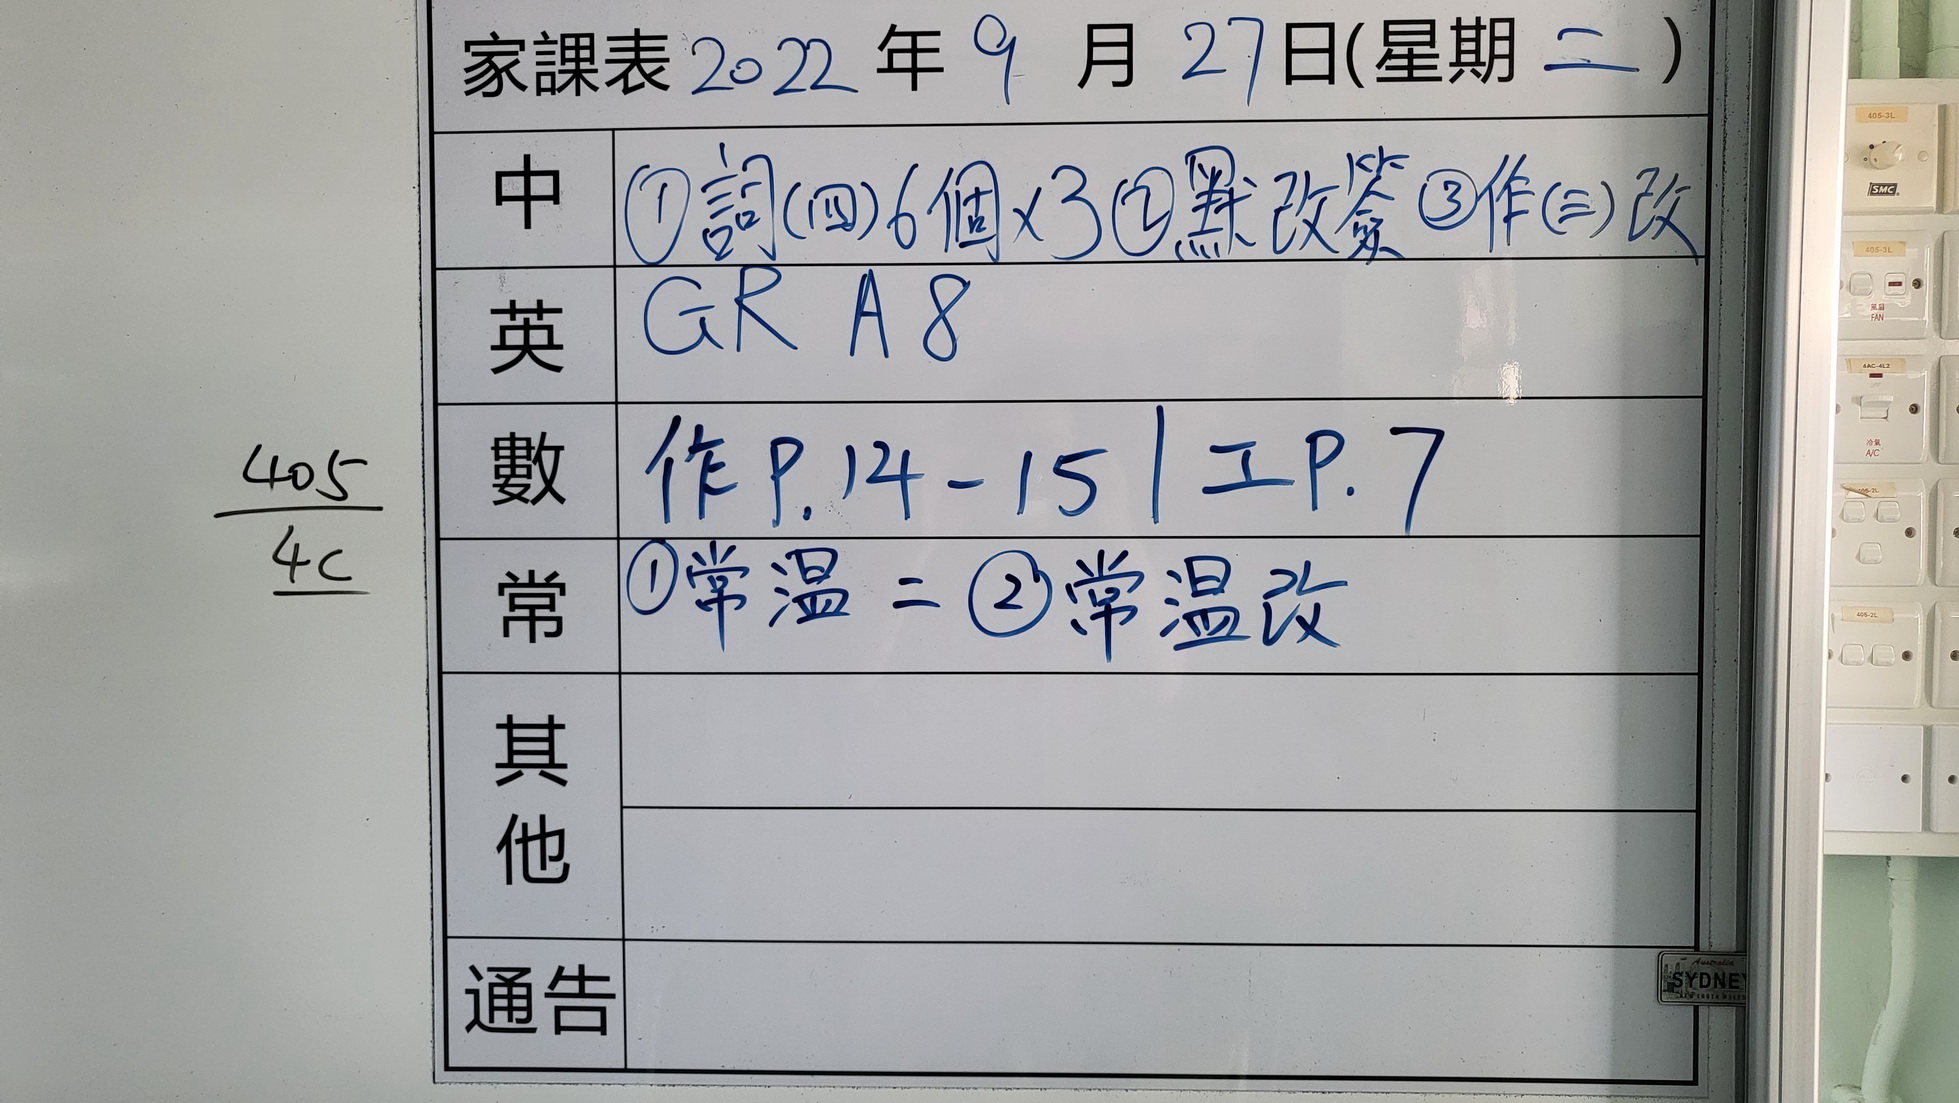 家課表 2022 年 9 月 27 日(星期 二 )
中 ①詞(四)6個x3②默改簽③作(三)改
英 GR A 8
數 作 P.14-15 | 工 P.7
405
4C
常 ①常温二 ②常温改
其他
通告
Australia
SYDNEY
405-3L
SMC
405-3L
風扇
FAN
4AC-4L2
冷氣
A/C
405-2L
405-2L